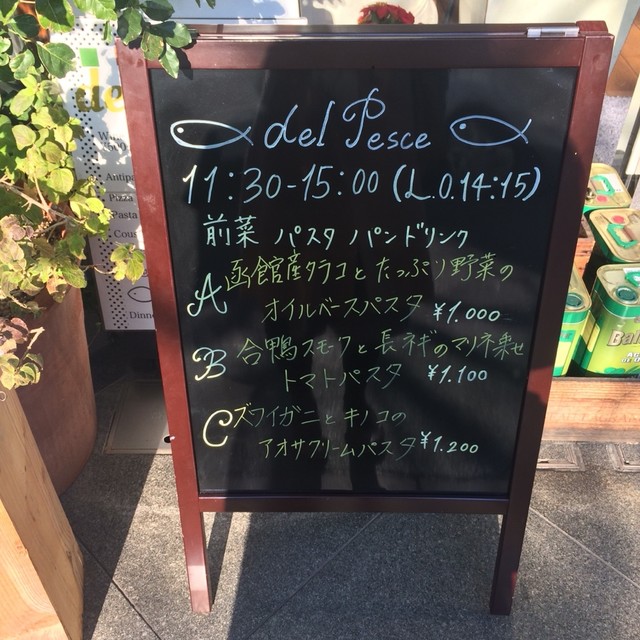 del Pesce
11:30-15:00 (L.O.14:15)
前菜 パスタ パンドリンク
A 函館産タラコとたっぷり野菜の
オイルベースパスタ ¥1.000-
B 合鴨スモークと長ネギのマリネ乗せ
トマトパスタ ¥1.100
C ズワイガニとキノコの
アオサクリームパスタ ¥1.200
de
Antipa
Pizza
Pasta
Cou
Dinne
Ba